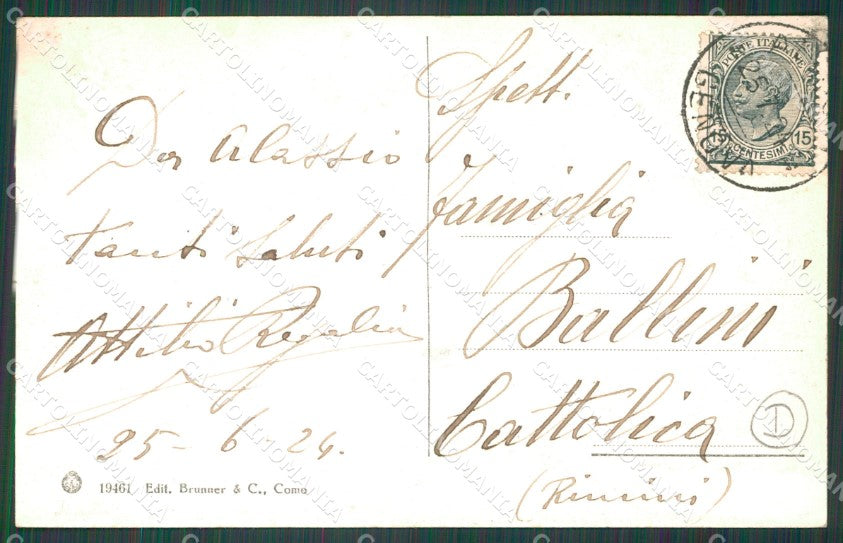 Da Alassio
Tanti saluti
Attilio Regalia
25-6-24.
19461 Edit. Brunner & C., Como
Spett.
famiglia
Ballini
Cattolica
(Rimini)
POSTE ITALIANE
15 CENTESIMI 15
D
CARTOLINOMANIA